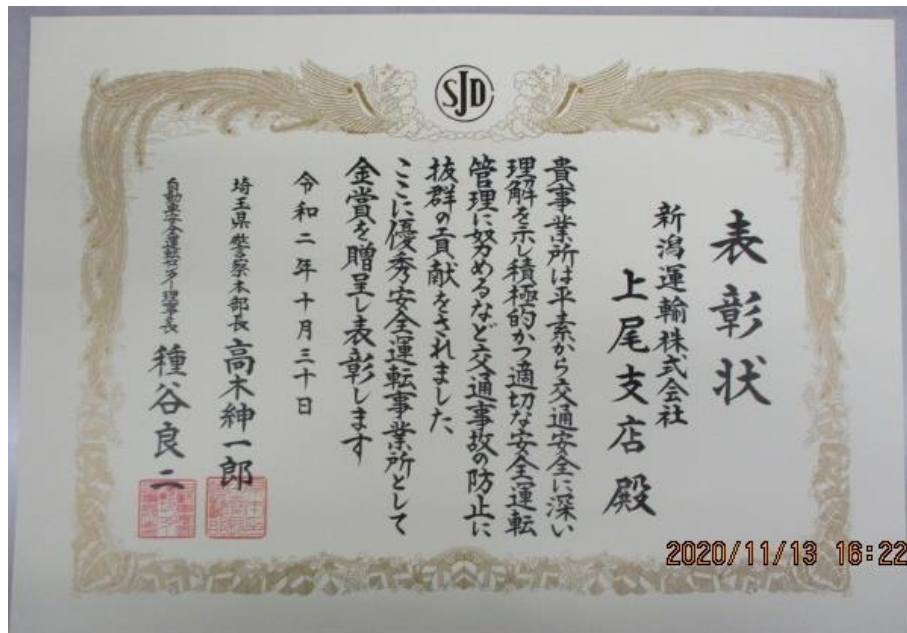 SJD
表彰状
新潟運輸株式会社
上尾支店殿
貴事業所は平素から交通安全に深い
理解を示し積極的かつ適切な安全運転
管理に努めるなど交通事故の防止に
抜群の貢献をされました
ここに優秀安全運転事業所として
金賞を贈呈し表彰します
令和二年十月三十日
埼玉県警察本部長 高木紳一郎
自動車安全運転センター理事長 種谷良二
2020/11/13 16:22